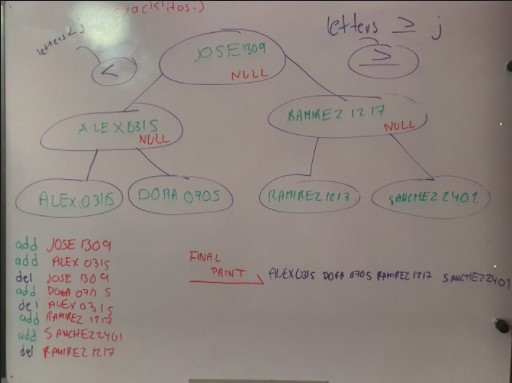 letters < j
letters ≥ j
<
≥
JOSE1309
NULL
ALEX0315
NULL
RAMIREZ 1217
NULL
ALEX0315
DORA 0705
RAMIREZ1217
SANCHEZ2401
add JOSE 1309
add ALEX 0315
del JOSE 1309
add DORA 0705
del ALEX0315
add RAMIREZ 1217
add SANCHEZ2401
del RAMIREZ 1217
FINAL
PRINT
ALEX0315 DORA 0705 RAMIREZ 1217 SANCHEZ2401